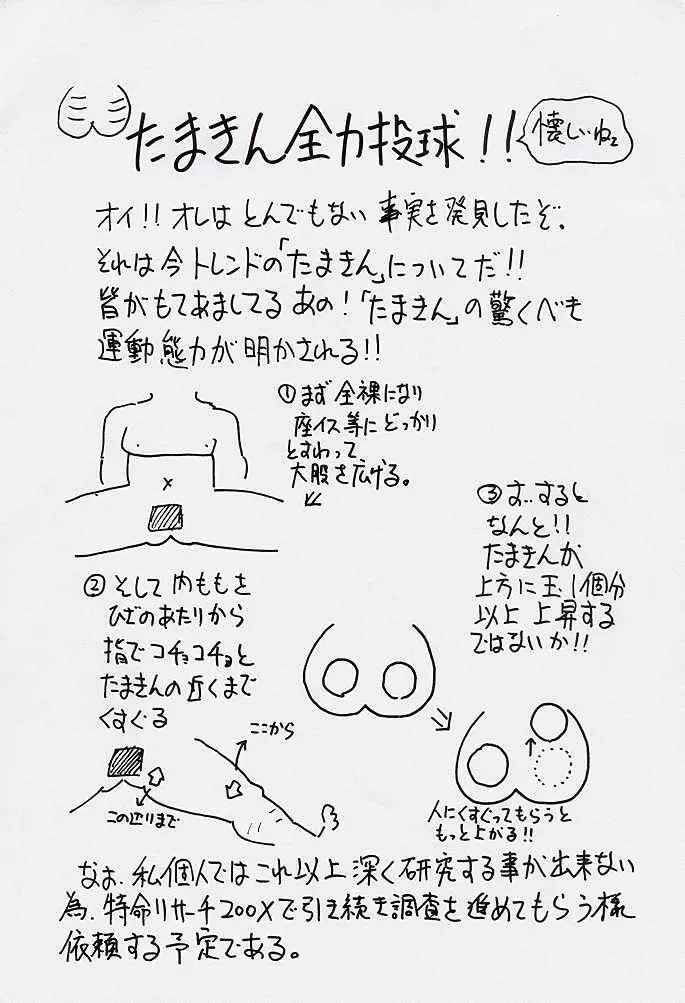 たまきん全力投球!!
懐しいねェ
オイ!! オレはとんでもない事実を発見したぞ。
それは今トレンドの「たまきん」についてだ!!
皆がもてあましてるあの!「たまきん」の驚くべき
運動態力が明かされる!!
①まず全裸になり
座イス等にどっかり
とすわって
大股を広げる。
②そして内ももを
ひざのあたりから
指でコチョコチョと
たまきんの近くまで
くすぐる
ここから
この辺りまで
③す、すると
なんと!!
たまきんが
上方に玉1個分
以上上昇する
ではないか!!
人にくすぐってもらうと
もっと上がる!!
なお、私個人ではこれ以上深く研究する事が出来ない
為、特命リサーチ200Xで引き続き調査を進めてもらう様
依頼する予定である。